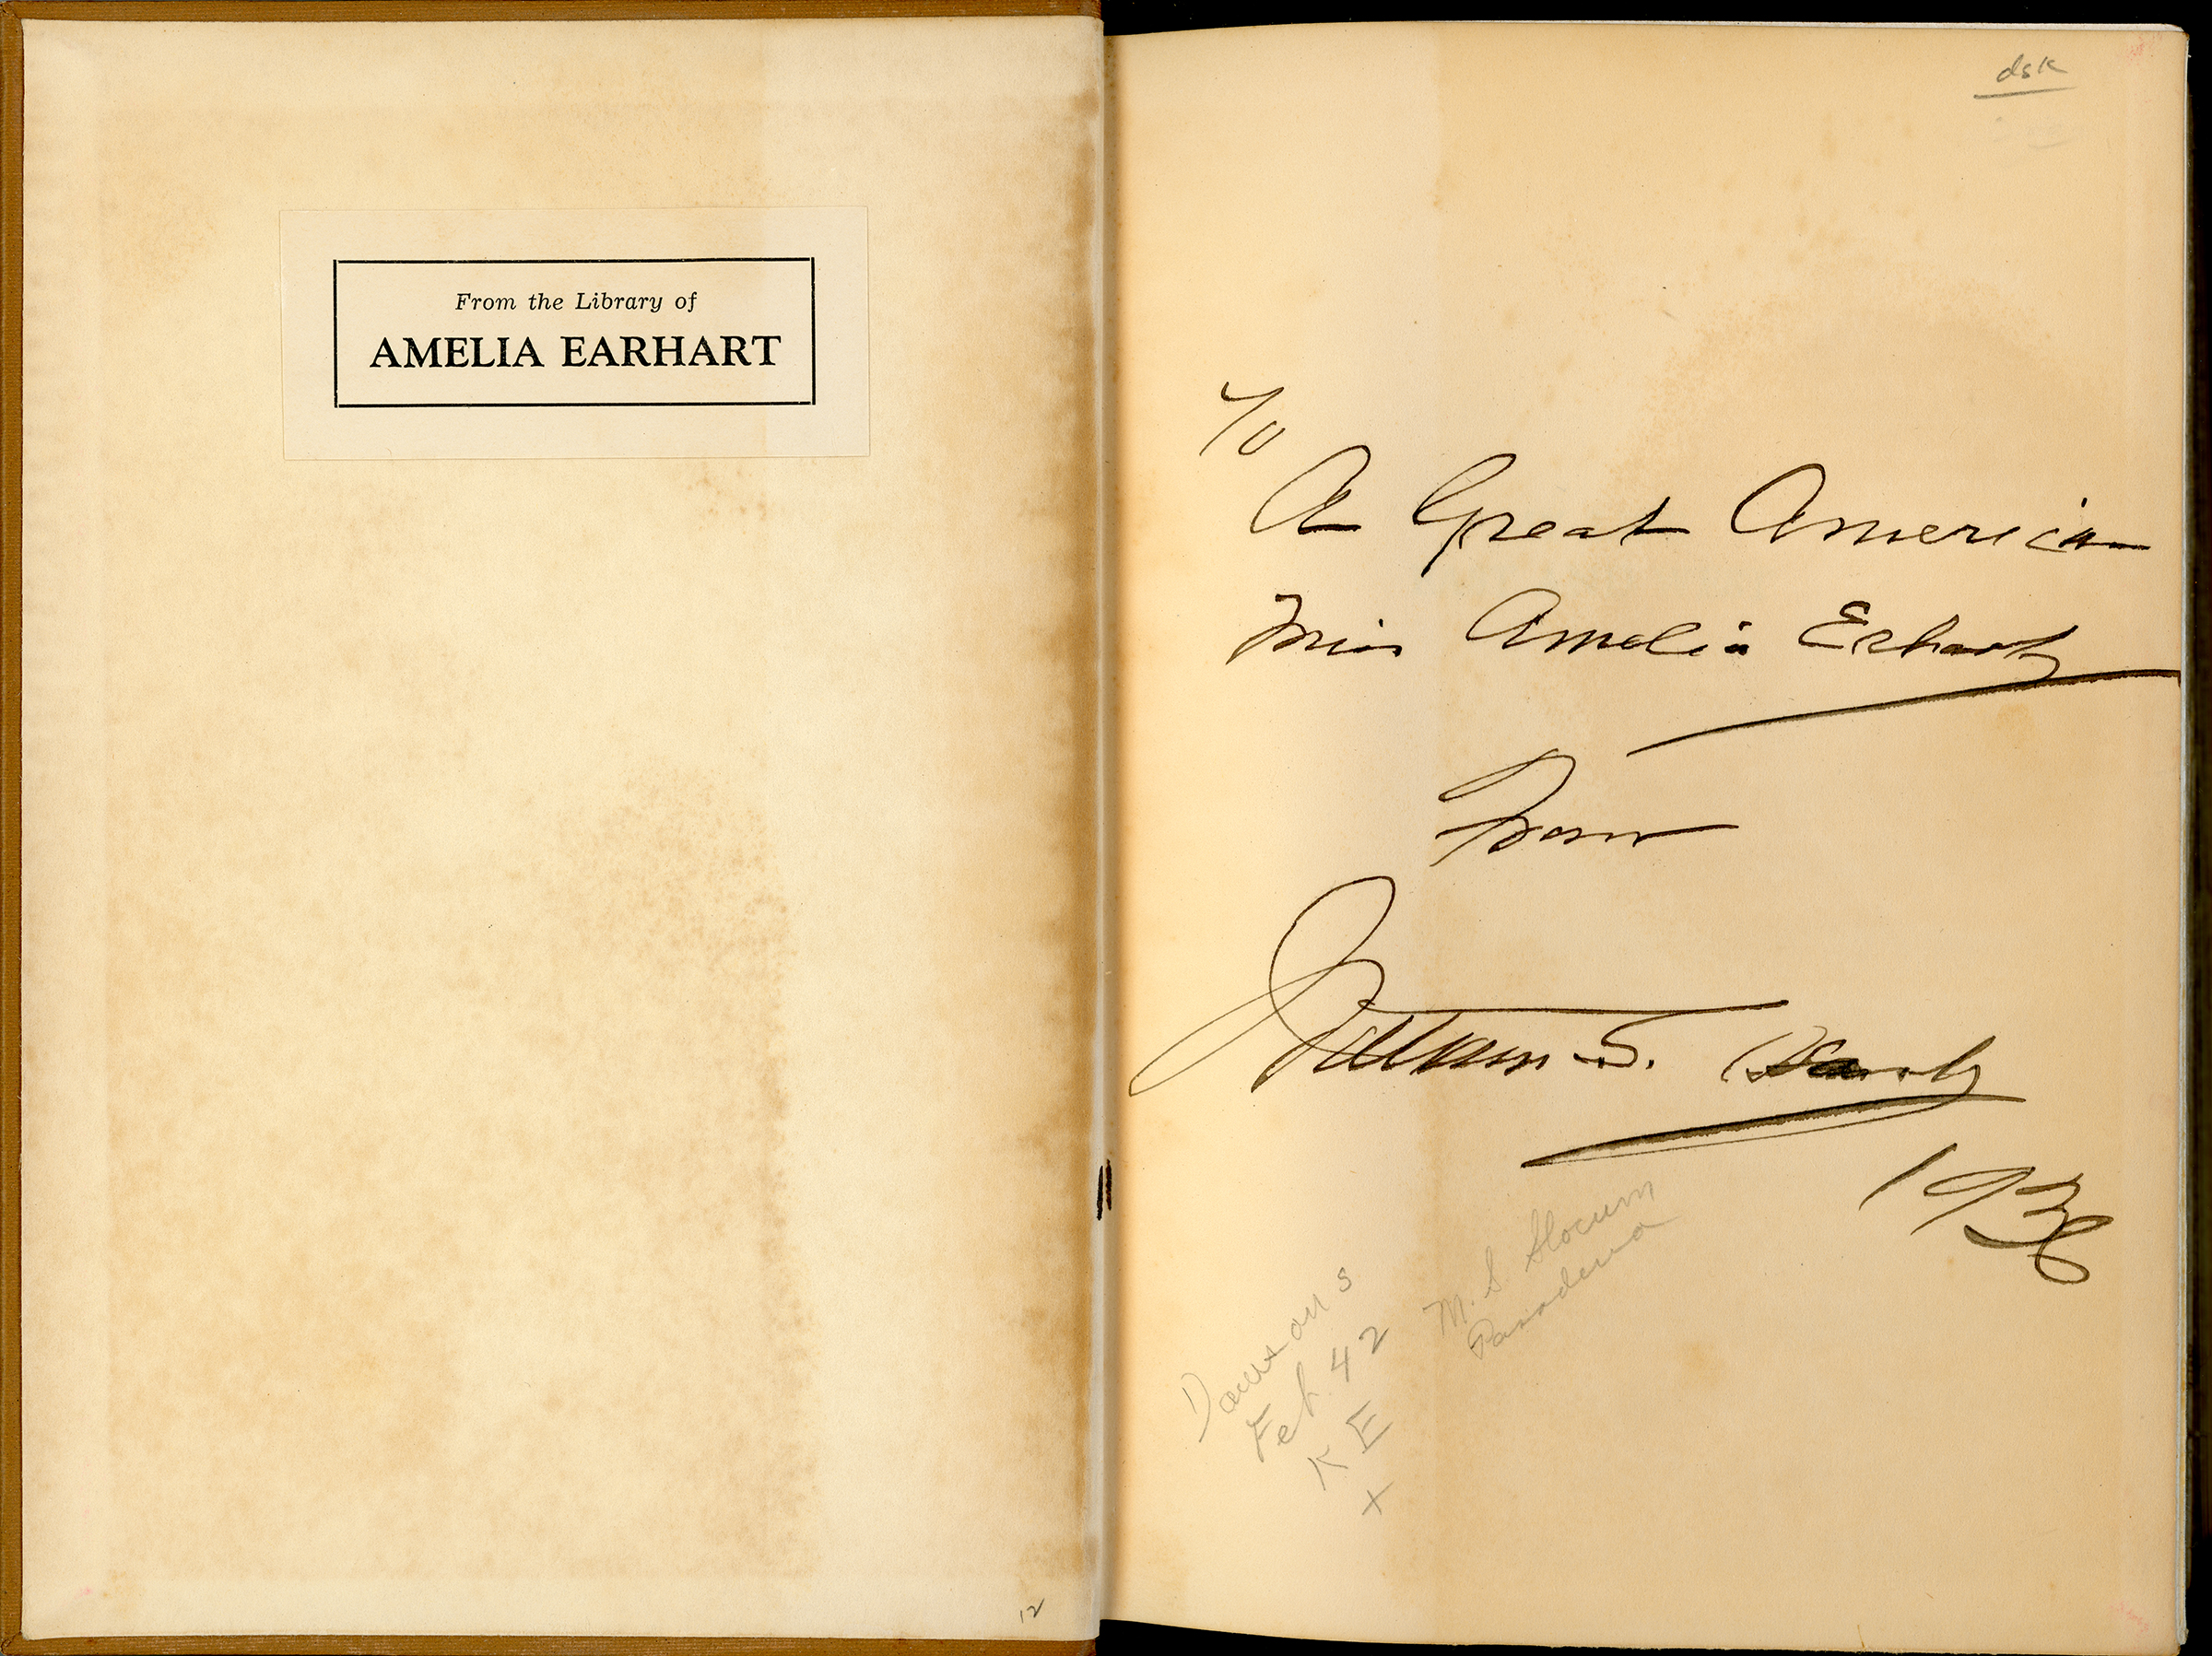 From the Library of
AMELIA EARHART
12
dsk
To
A Great American
Miss Amelia Erhart
From
William S.
1936
M. S. Slocum
Pasadena
Dawsons
Feb. 42
K E
x